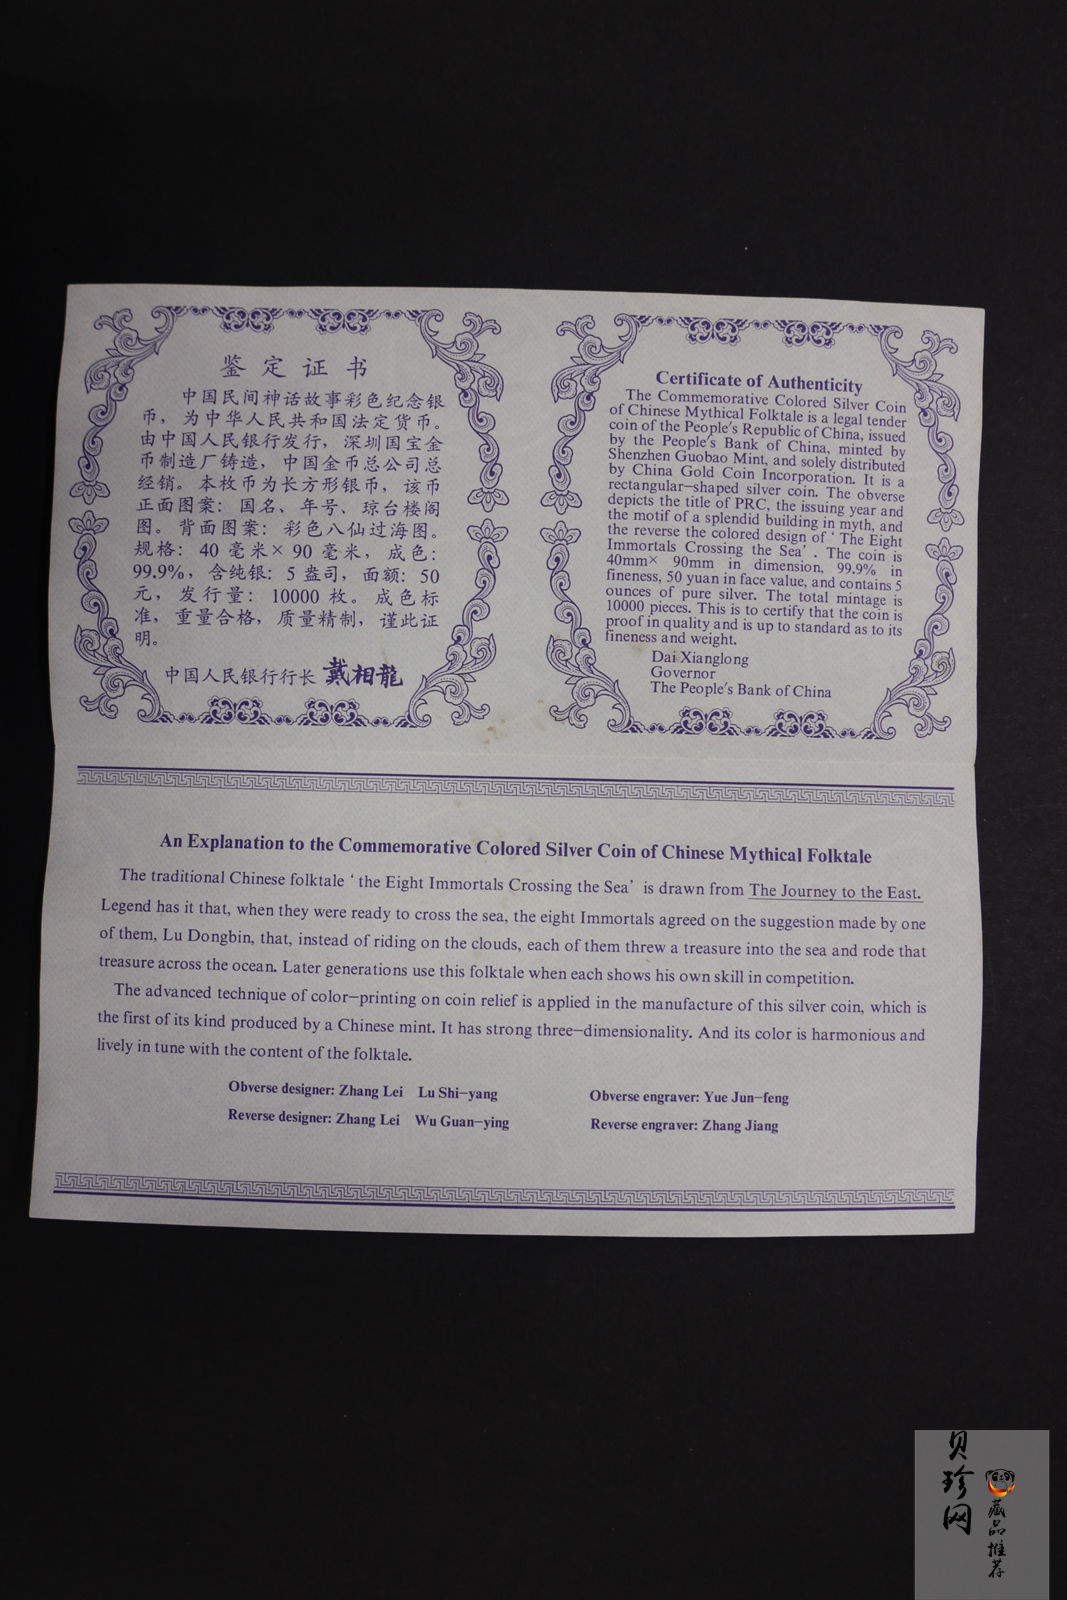 鉴定证书
中国民间神话故事彩色纪念银
币，为中华人民共和国法定货币。
由中国人民银行发行，深圳国宝金
币制造厂铸造，中国金币总公司总
经销。本枚币为长方形银币，该币
正面图案：国名、年号、琼台楼阁
图。背面图案：彩色八仙过海图。
规格：40毫米×90毫米，成色：
99.9%，含纯银：5盎司，面额：50
元，发行量：10000枚。成色标
准，重量合格，质量精制，谨此证
明。
中国人民银行行长 戴相龍
Certificate of Authenticity
The Commemorative Colored Silver Coin
of Chinese Mythical Folktale is a legal tender
coin of the People's Republic of China, issued
by the People's Bank of China, minted by
Shenzhen Guobao Mint, and solely distributed
by China Gold Coin Incorporation. It is a
rectangular-shaped silver coin. The obverse
depicts the title of PRC, the issuing year and
the motif of a splendid building in myth, and
the reverse the colored design of 'The Eight
Immortals Crossing the Sea'. The coin is
40mm× 90mm in dimension, 99.9% in
fineness, 50 yuan in face value, and contains 5
ounces of pure silver. The total mintage is
10000 pieces. This is to certify that the coin is
proof in quality and is up to standard as to its
fineness and weight.
Dai Xianglong
Governor
The People's Bank of China
An Explanation to the Commemorative Colored Silver Coin of Chinese Mythical Folktale
The traditional Chinese folktale 'the Eight Immortals Crossing the Sea' is drawn from The Journey to the East.
Legend has it that, when they were ready to cross the sea, the eight Immortals agreed on the suggestion made by one
of them, Lu Dongbin, that, instead of riding on the clouds, each of them threw a treasure into the sea and rode that
treasure across the ocean. Later generations use this folktale when each shows his own skill in competition.
The advanced technique of color-printing on coin relief is applied in the manufacture of this silver coin, which is
the first of its kind produced by a Chinese mint. It has strong three-dimensionality. And its color is harmonious and
lively in tune with the content of the folktale.
Obverse designer: Zhang Lei Lu Shi-yang
Obverse engraver: Yue Jun-feng
Reverse designer: Zhang Lei Wu Guan-ying
Reverse engraver: Zhang Jiang
贝珍网
藏品推荐